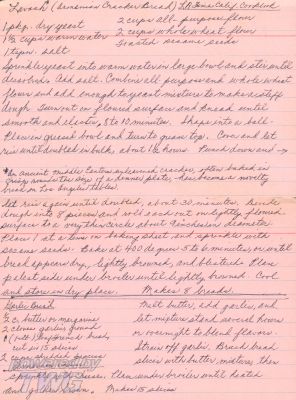 Lavosh (Armenian Cracker Bread) LA Times Calif Cookbook
1 pkg. dry yeast
2 cups all-purpose flour
1 1/2 cups warm water
2 cups whole wheat flour
1 tspn. salt
toasted sesame seeds
Sprinkle yeast into warm water in large bowl and stir until
dissolved. Add salt. Combine all purpose and whole wheat
flours and add enough to yeast mixture to make a stiff
dough. Turn out on floured surface and knead until
smooth and elastic, 8 to 10 minutes. Shape into a ball.
Place in greased bowl and turn to grease top. Cover and let
rise until doubled in bulk, about 1 1/2 hours. Punch down and →
*An ancient Middle Eastern unleavened cracker, often baked in
crispy rounds the size of a dinner plate. Has become a novelty
bread on Los Angeles tables.
let rise again until doubled, about 30 minutes. Divide
dough into 8 pieces and roll each out on lightly floured
surface to a very thin circle about 9 inches in diameter.
Place 1 at a time on baking sheet and sprinkle with
sesame seeds. Bake at 400 degrees 5 to 6 minutes or until
bread appears dry, lightly browned, and blistered. Place
palest side under broiler until lightly browned. Cool
and store in dry place. Makes 8 breads.
Garlic Bread
Melt butter, add garlic, and
butter or margarine
let mixture stand several hours
2 cloves garlic, ground
or overnight to blend flavors.
1 French bread,
Strain off garlic. Brush bread
cut in 15 slices
slices with butter mixture, then
cheese. Place under broiler until heated
and golden brown. Makes 15 slices
TWG